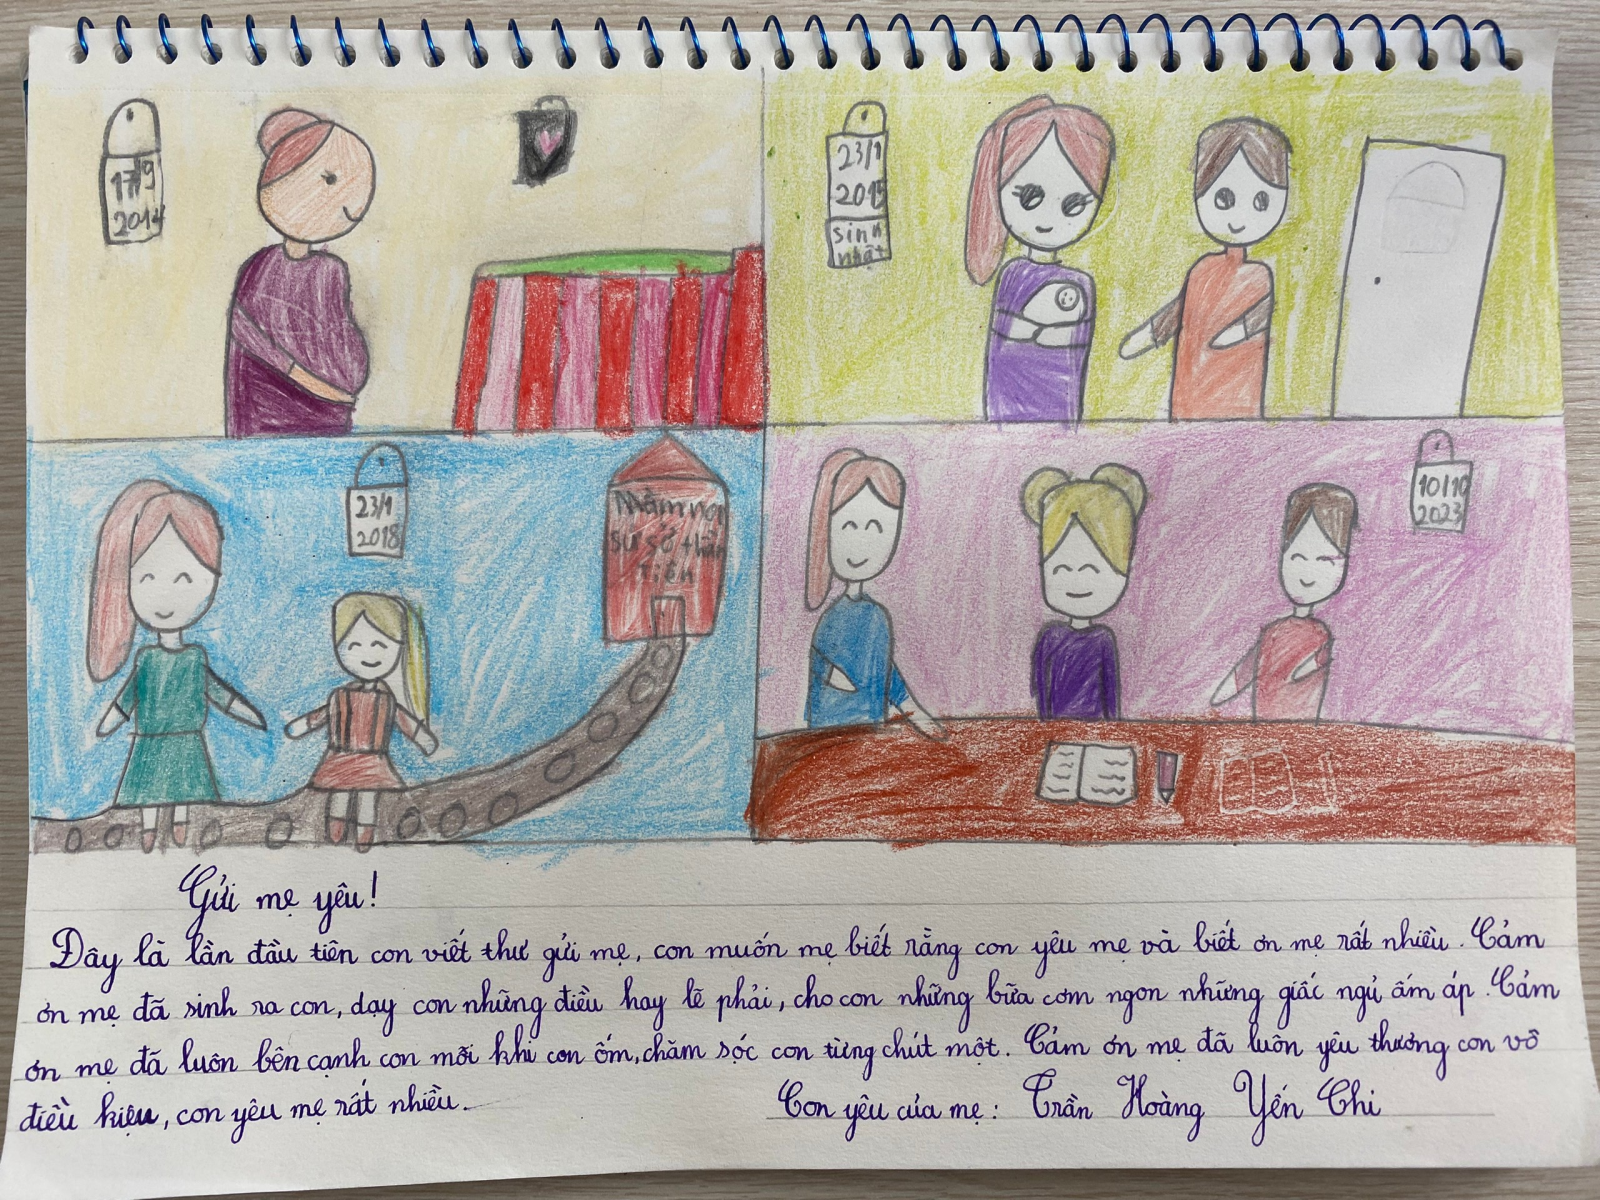 17/9
2014
23/1
2015
sinh
nhật
23/1
2018
Mầm non
sứ sở thần
tiên
10/10
2023
Gửi mẹ yêu!
Đây là lần đầu tiên con viết thư gửi mẹ, con muốn mẹ biết rằng con yêu mẹ và biết ơn mẹ rất nhiều. Cảm
ơn mẹ đã sinh ra con, dạy con những điều hay lẽ phải, cho con những bữa cơm ngon những giấc ngủ ấm áp. Cảm
ơn mẹ đã luôn bên cạnh con mỗi khi con ốm, chăm sóc con từng chút một. Cảm ơn mẹ đã luôn yêu thương con vô
điều kiện, con yêu mẹ rất nhiều.
Con yêu của mẹ: Trần Hoàng Yến Chi